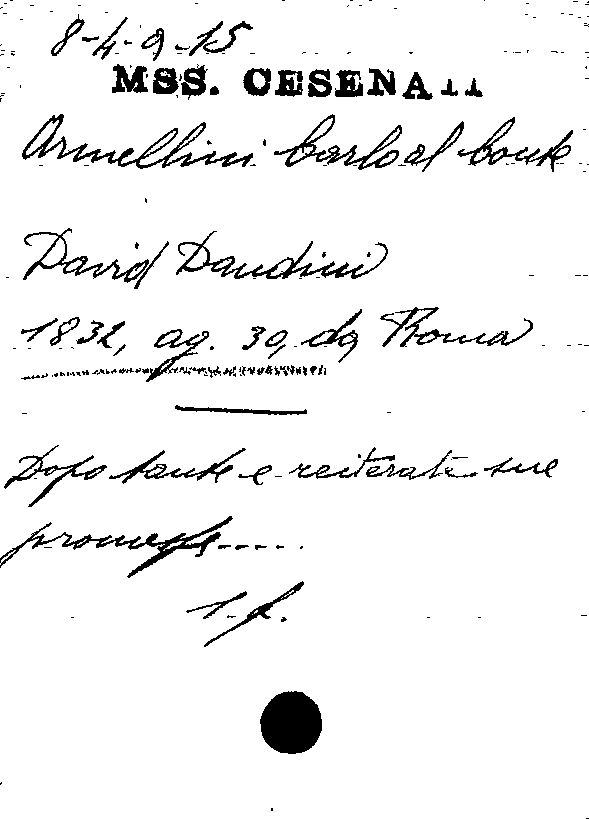 8-4-9-15
MSS. CESENATI
Armellini Carlo al Conte
David Dandini
1832, ag. 30, da Roma
Dopo tante e reiterate sue
promesse.....
1 f.